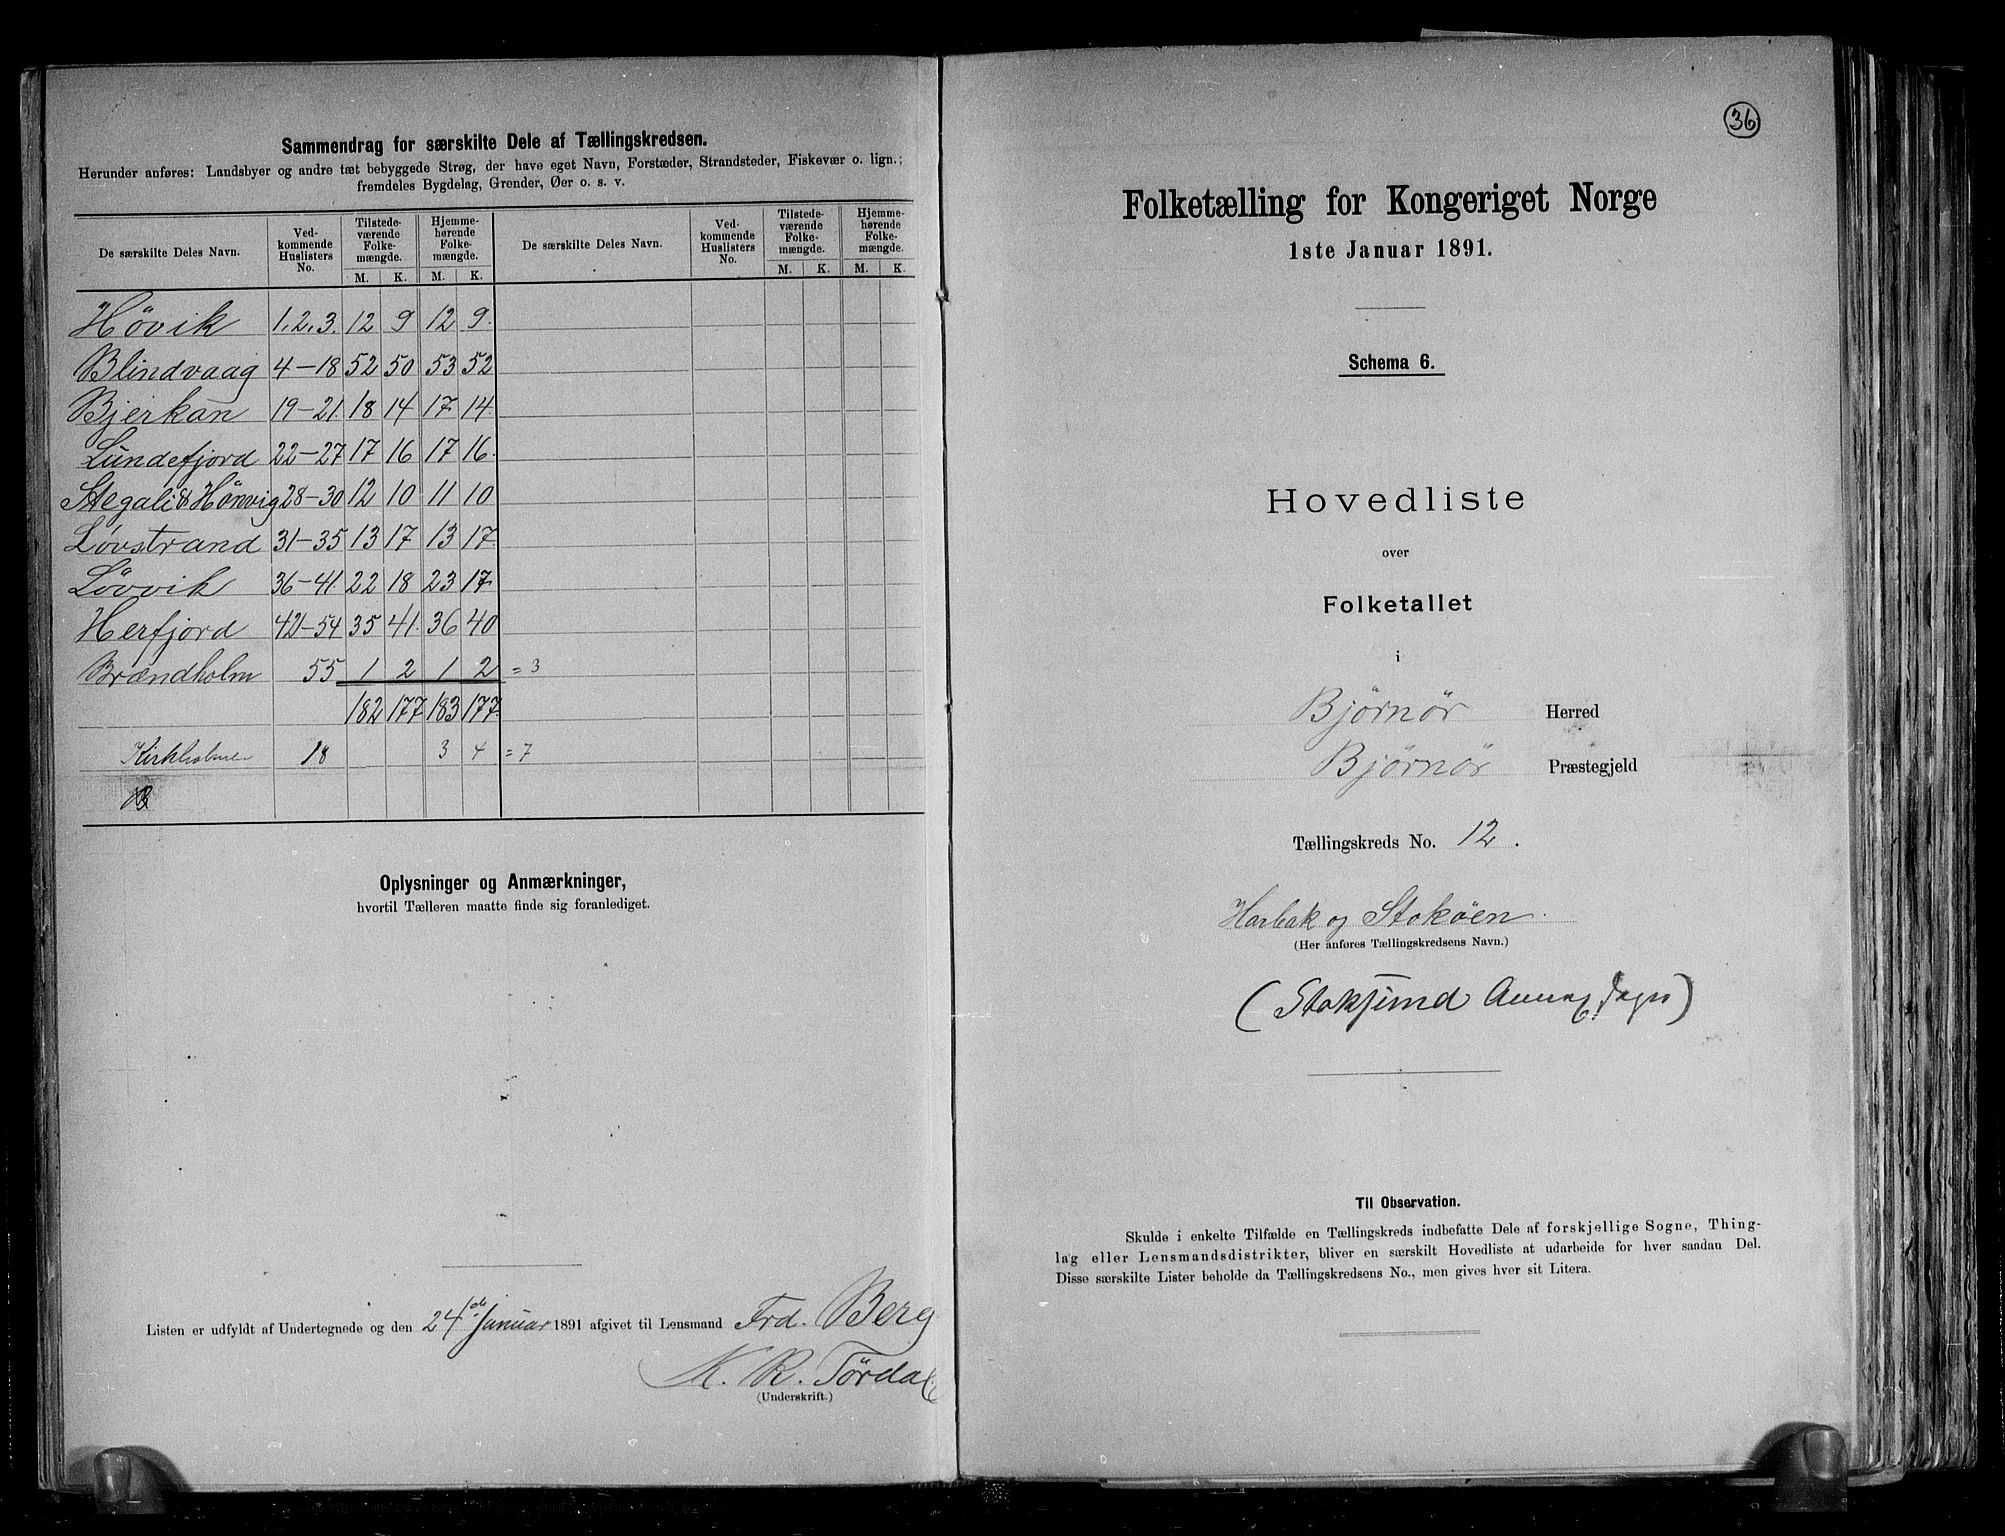 Sammendrag for særskilte Dele af Tællingskredsen.
Herunder anføres: Landsbyer og andre tæt bebyggede Strøg, der have eget Navn, Forstæder, Strandsteder, Fiskevær o. lign.;
fremdeles Bygdelag, Grender, Øer o. s. v.
De særskilte Deles Navn. Ved-kommende Huslisters No. Tilstede-værende Folke-mængde. Hjemme-hørende Folke-mængde. De særskilte Deles Navn. Ved-kommende Huslisters No. Tilstede-værende Folke-mængde. Hjemme-hørende Folke-mængde.
M. K. M. K. M. K. M. K.
Høvik 1, 2, 3. 12 9 12 9.
Blindvaag 4-18 52 50 53 52
Bjerkan 19-21. 18 14 17 14.
Lundefjord 22-27 17 16 17 16.
Stegali & Hønvig 28-30 12 10 11 10
Løvstrand 31-35 13 17 13 17.
Løvvik 36-41. 22 18 23 17
Herfjord 42-54 35 41. 36 40
Brændholm 55 1 2 1 2 = 3
182 177 183 177.
18 3 4 = 7
Oplysninger og Anmærkninger,
hvortil Tælleren maatte finde sig foranlediget.
Listen er udfyldt af Undertegnede og den 24de Januar 1891 afgivet til Lensmand Frd. Berg
K. R. Tørdal
(Underskrift.)
36
Folketælling for Kongeriget Norge
1ste Januar 1891.
Schema 6.
Hovedliste
over
Folketallet
i
Bjørnør Herred
Bjørnør Præstegjeld
Tællingskreds No. 12.
Harbak og Stokøen.
(Her anføres Tællingskredsens Navn.)
(Stoksund
Til Observation.
Skulde i enkelte Tilfælde en Tællingskreds indbefatte Dele af forskjellige Sogne, Thing-
lag eller Lensmandsdistrikter, bliver en særskilt Hovedliste at udarbeide for hver saadan Del.
Disse særskilte Lister beholde da Tællingskredsens No., men gives hver sit Litera.